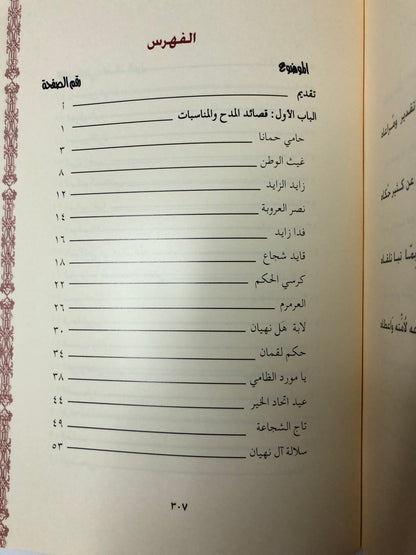 الفهرس
الموضوع رقم الصفحة
تقديم أ
الباب الأول: قصائد المدح والمناسبات ١
حامي حمانا ٣
غيث الوطن ٨
زايد الزايد ١٢
نصر العروبة ١٤
فدا زايد ١٦
قايد شجاع ١٨
كرسي الحكم ٢٢
العرمرم ٢٦
لابة هَل نهيان ٣٠
حكم لقمان ٣٤
يا مورد الظامي ٣٨
عيد اتحاد الخير ٤٤
تاج الشجاعة ٤٩
سلالة آل نهيان ٥٣
٣٠٧
عن كثير حكاه